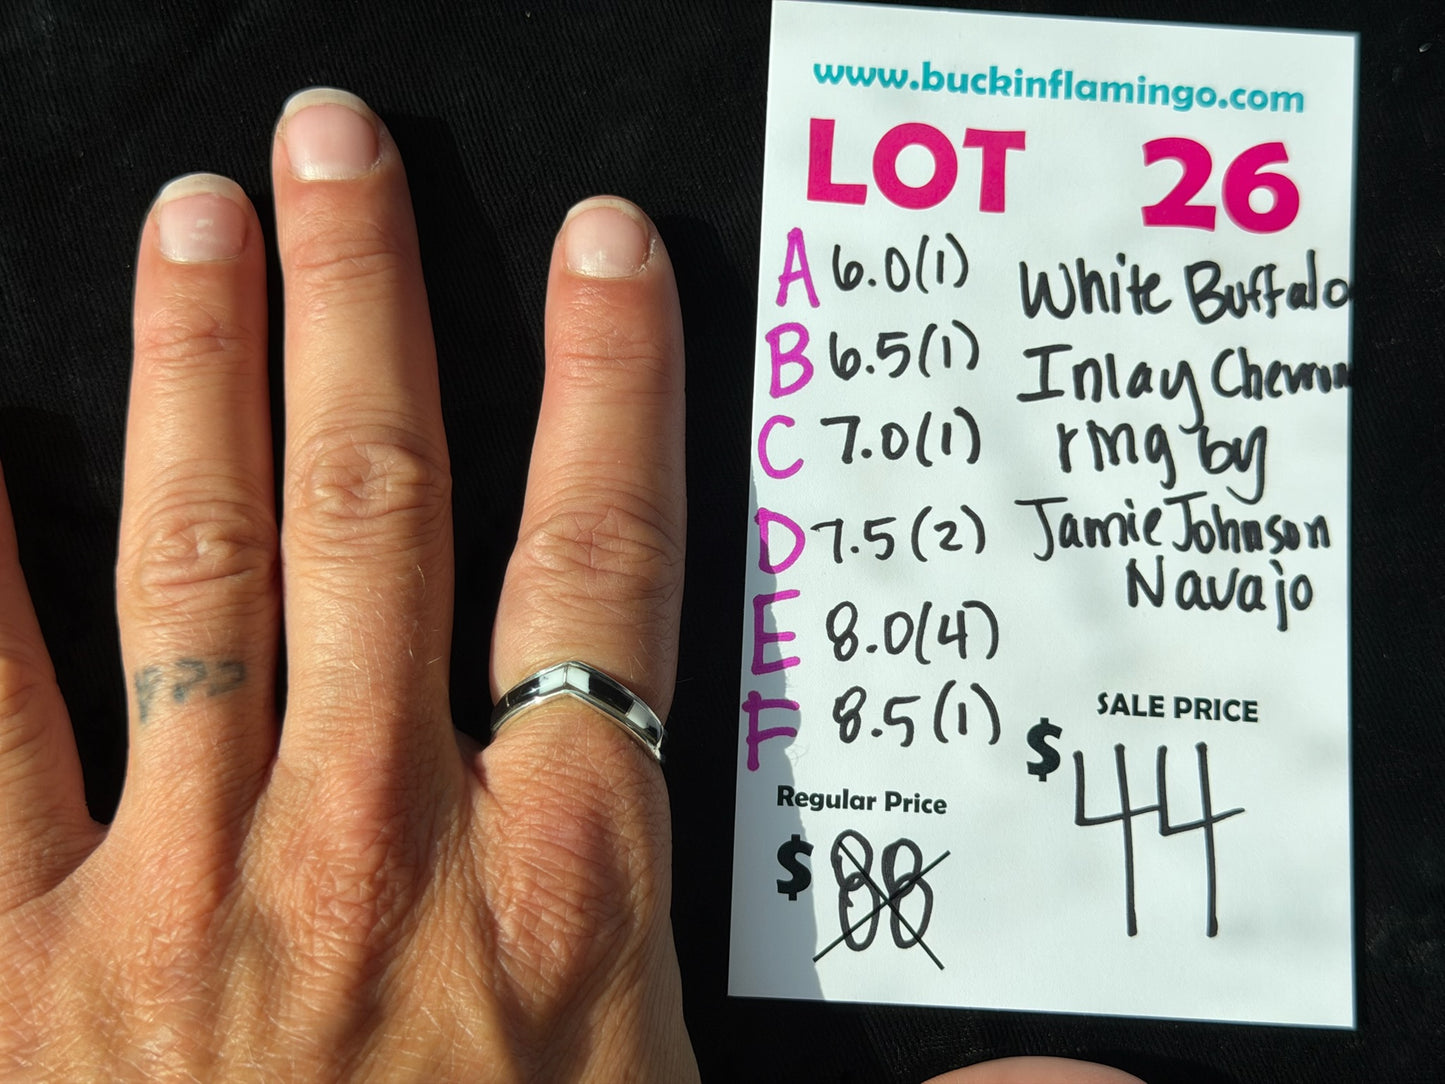 www.buckinflamingo.com
LOT 26
A 6.0(1)
B 6.5(1)
C 7.0(1)
D 7.5(2)
E 8.0(4)
F 8.5(1)
White Buffalo
Inlay Chevron
ring by
Jamie Johnson
Navajo
SALE PRICE
$44
Regular Price
$88